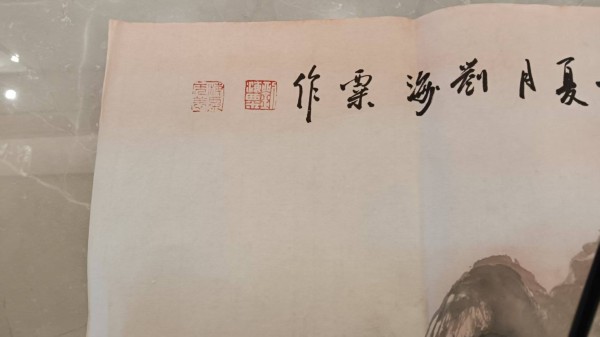 夏月劉海粟作